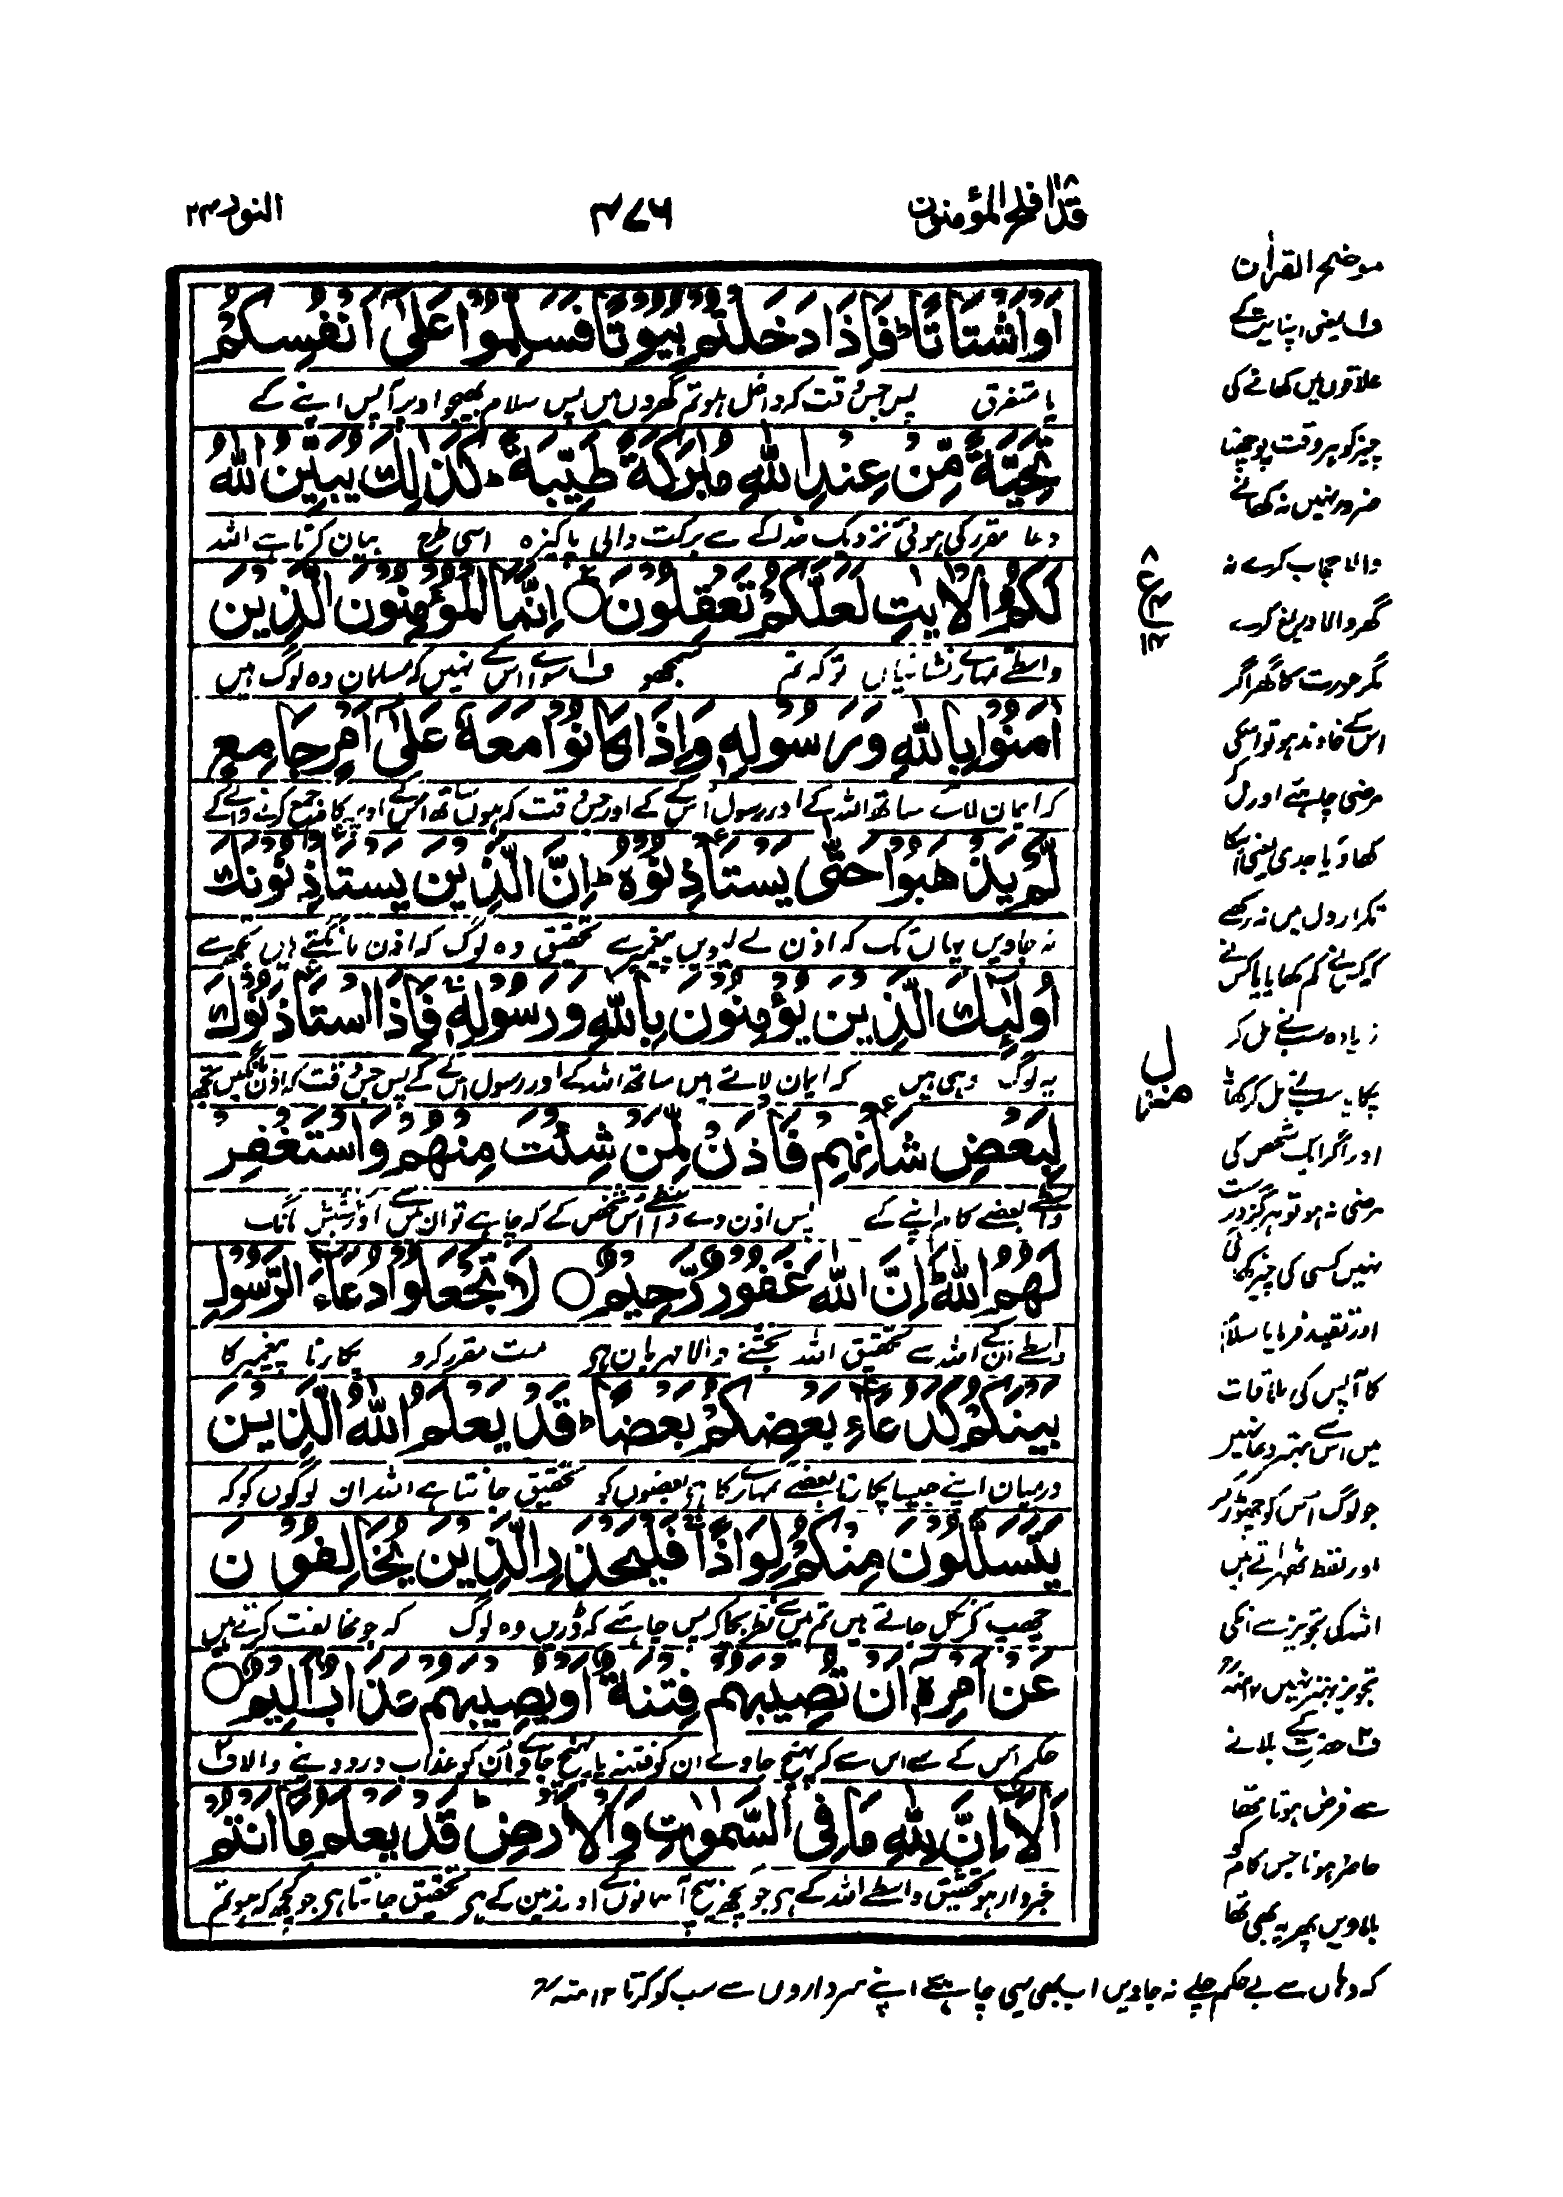 قد افلح المؤمنون ١٨
٤٧٦
النور ٢٤
اَوْ اَشْتَاتًا ؕ فَاِذَا دَخَلْتُمْ بُيُوْتًا فَسَلِّمُوْا عَلٰۤى اَنْفُسِكُمْ
یا متفرق پس جس وقت کہ داخل ہو تم گھروں میں پس سلام بھیجو اوپر آپس اپنے کے
تَحِيَّةً مِّنْ عِنْدِ اللّٰهِ مُبٰرَكَةً طَيِّبَةً ؕ كَذٰلِكَ يُبَيِّنُ اللّٰهُ
دعا مقرر کی ہوئی نزدیک خدا کے سے برکت والی پاکیزہ اسی طرح بیان کرتا ہے اللہ
لَكُمُ الْاٰيٰتِ لَعَلَّكُمْ تَعْقِلُوْنَ ۝ اِنَّمَا الْمُؤْمِنُوْنَ الَّذِيْنَ
واسطے تمہارے نشانیاں تو کہ تم سمجھو ف١ سوائے اس کے نہیں کہ مسلمان وہ لوگ ہیں
اٰمَنُوْا بِاللّٰهِ وَرَسُوْلِهٖ وَاِذَا كَانُوْا مَعَهٗ عَلٰۤى اَمْرٍ جَامِعٍ
کہ ایمان لائے ساتھ اللہ کے اور رسول اس کے کے اور جس وقت کہ ہوں ساتھ اس کے اوپر کام جمع کرنے والے کے
لَّمْ يَذْهَبُوْا حَتّٰى يَسْتَاْذِنُوْهُ ؕ اِنَّ الَّذِيْنَ يَسْتَاْذِنُوْنَكَ
نہ جاویں یہاں تک کہ اذن لے لیویں پیغمبر سے تحقیق وہ لوگ کہ اذن مانگتے ہیں تجھ سے
اُولٰٓئِكَ الَّذِيْنَ يُؤْمِنُوْنَ بِاللّٰهِ وَرَسُوْلِهٖ ۚ فَاِذَا اسْتَاْذَنُوْكَ
یہ لوگ وہی ہیں کہ ایمان لاتے ہیں ساتھ اللہ کے اور رسول اس کے کے پس جس وقت کہ اذن مانگیں تجھ
لِبَعْضِ شَاْنِهِمْ فَاْذَنْ لِّمَنْ شِئْتَ مِنْهُمْ وَاسْتَغْفِرْ
واسطے بعضے کام اپنے کے پس اذن دے واسطے اس شخص کے کہ چاہے تو ان میں سے اور بخشش مانگ
لَهُمُ اللّٰهَ ؕ اِنَّ اللّٰهَ غَفُوْرٌ رَّحِيْمٌ ۝ لَا تَجْعَلُوْا دُعَآءَ الرَّسُوْلِ
واسطے ان کے اللہ سے تحقیق اللہ بخشنے والا مہربان ہے مت مقرر کرو پکارنا پیغمبر کا
بَيْنَكُمْ كَدُعَآءِ بَعْضِكُمْ بَعْضًا ؕ قَدْ يَعْلَمُ اللّٰهُ الَّذِيْنَ
درمیان اپنے جیسا پکارنا بعضے تمہارے کا ہے بعضوں کو تحقیق جانتا ہے اللہ ان لوگوں کو کہ
يَتَسَلَّلُوْنَ مِنْكُمْ لِوَاذًا ۚ فَلْيَحْذَرِ الَّذِيْنَ يُخَالِفُوْنَ
چھپ کر نکل جاتے ہیں تم میں سے نظر بچا کر پس چاہئے کہ ڈریں وہ لوگ کہ جو مخالفت کرتے ہیں
عَنْ اَمْرِهٖۤ اَنْ تُصِيْبَهُمْ فِتْنَةٌ اَوْ يُصِيْبَهُمْ عَذَابٌ اَلِيْمٌ ۝
حکم اس کے سے اس سے کہ پہنچ جاوے ان کو فتنہ یا پہنچ جاوے ان کو عذاب درد دینے والا ف٢
اَلَاۤ اِنَّ لِلّٰهِ مَا فِى السَّمٰوٰتِ وَالْاَرْضِ ؕ قَدْ يَعْلَمُ مَاۤ اَنْتُمْ
خبردار ہو تحقیق واسطے اللہ کے ہے جو کچھ بیچ آسمانوں کے اور زمین کے ہے تحقیق جانتا ہے جو کچھ کہ ہو تم
منزل
موضح القرآن
ف١ یعنی اپنایت کے
علاقوں میں کھانے کی
چیز کو ہر وقت پوچھنا
ضرور نہیں نہ کھانے
والا حجاب کرے نہ
گھر والا دریغ کرے
مگر عورت کا گھر اگر
اس کے خاوند ہو تو اسکی
مرضی چاہئے اور مل کر
کھاؤ یا جدی یعنی اسکا
تکرار دل میں نہ رکھے
کہ کس نے کم کھایا یا کس نے
زیادہ سب نے مل کر
پکایا سب نے مل کر کھایا
اور اگر ایک شخص کی
مرضی نہ ہو تو ہرگز درست
نہیں کسی کی چیز کھانی
اور تقید فرمایا سلام
کا آپس کی ملاقات
میں اس سے بہتر دعا نہیں
جو لوگ اس کو چھوڑ کر
اور لفظ ٹھہراتے ہیں
اللہ کی تجویز سے انکی
تجویز بہتر نہیں ١٢ منہ
ف٢ حضرت کے بلانے
سے فرض ہوتا تھا
حاضر ہونا جس کام کو
بلاویں پھر یہ بھی تھا
کہ وہاں سے بے حکم چلے نہ جاویں اب بھی یہی چاہئے اپنے سرداروں سے سب کو کرنا ١٢ منہ